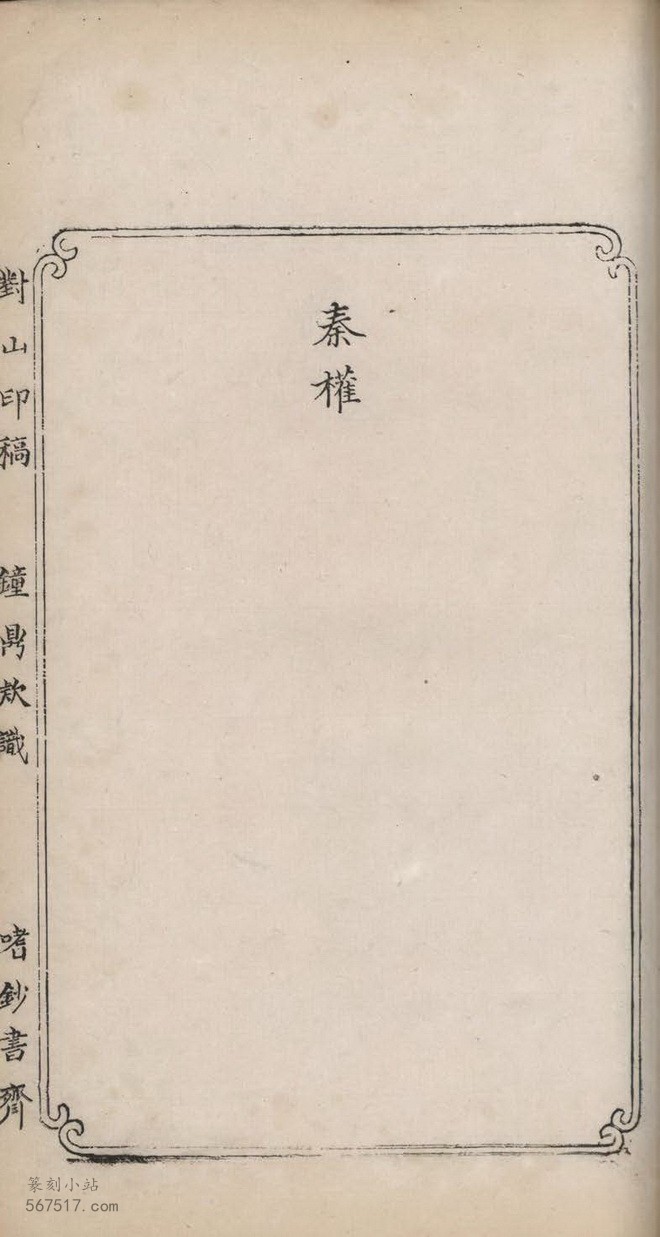 秦權
對山印稿 鐘鼎欵識 嗜鈔書齋
篆刻小站
567517.com